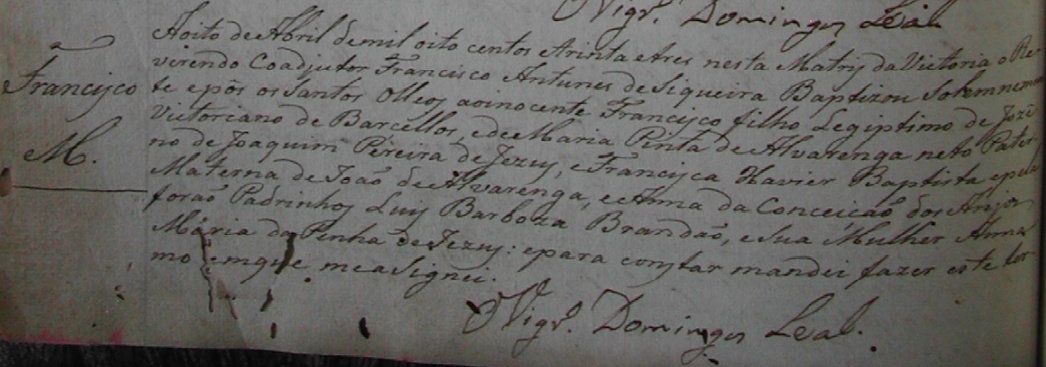 Vigr.º Domingos Leal
Francisco
M.
A oito de Abril de mil oito centos trinta e tres nesta Matriz da Victoria o Re
verendo Coadjutor Francisco Antunes de Siqueira Baptizou Solemnemen
te e pôs os Santos Olleos ao inocente Francisco filho Legiptimo de Jozé
Victoriano de Barcellos, e de Maria Pinta de Alvarenga neto Pater
no de Joaquim Pereira de Jezus, e Francisca Xavier Baptista e pela
Materna de João de Alvarenga, e Anna da Conceicaõ dos Anjos
foraõ Padrinhos Luis Barboza Brandaõ, e Sua Mulher Anna
Maria da Penha de Jezus: e para constar mandei fazer este ter
mo em que me aSignei.
Vigr.º Domingos Leal.